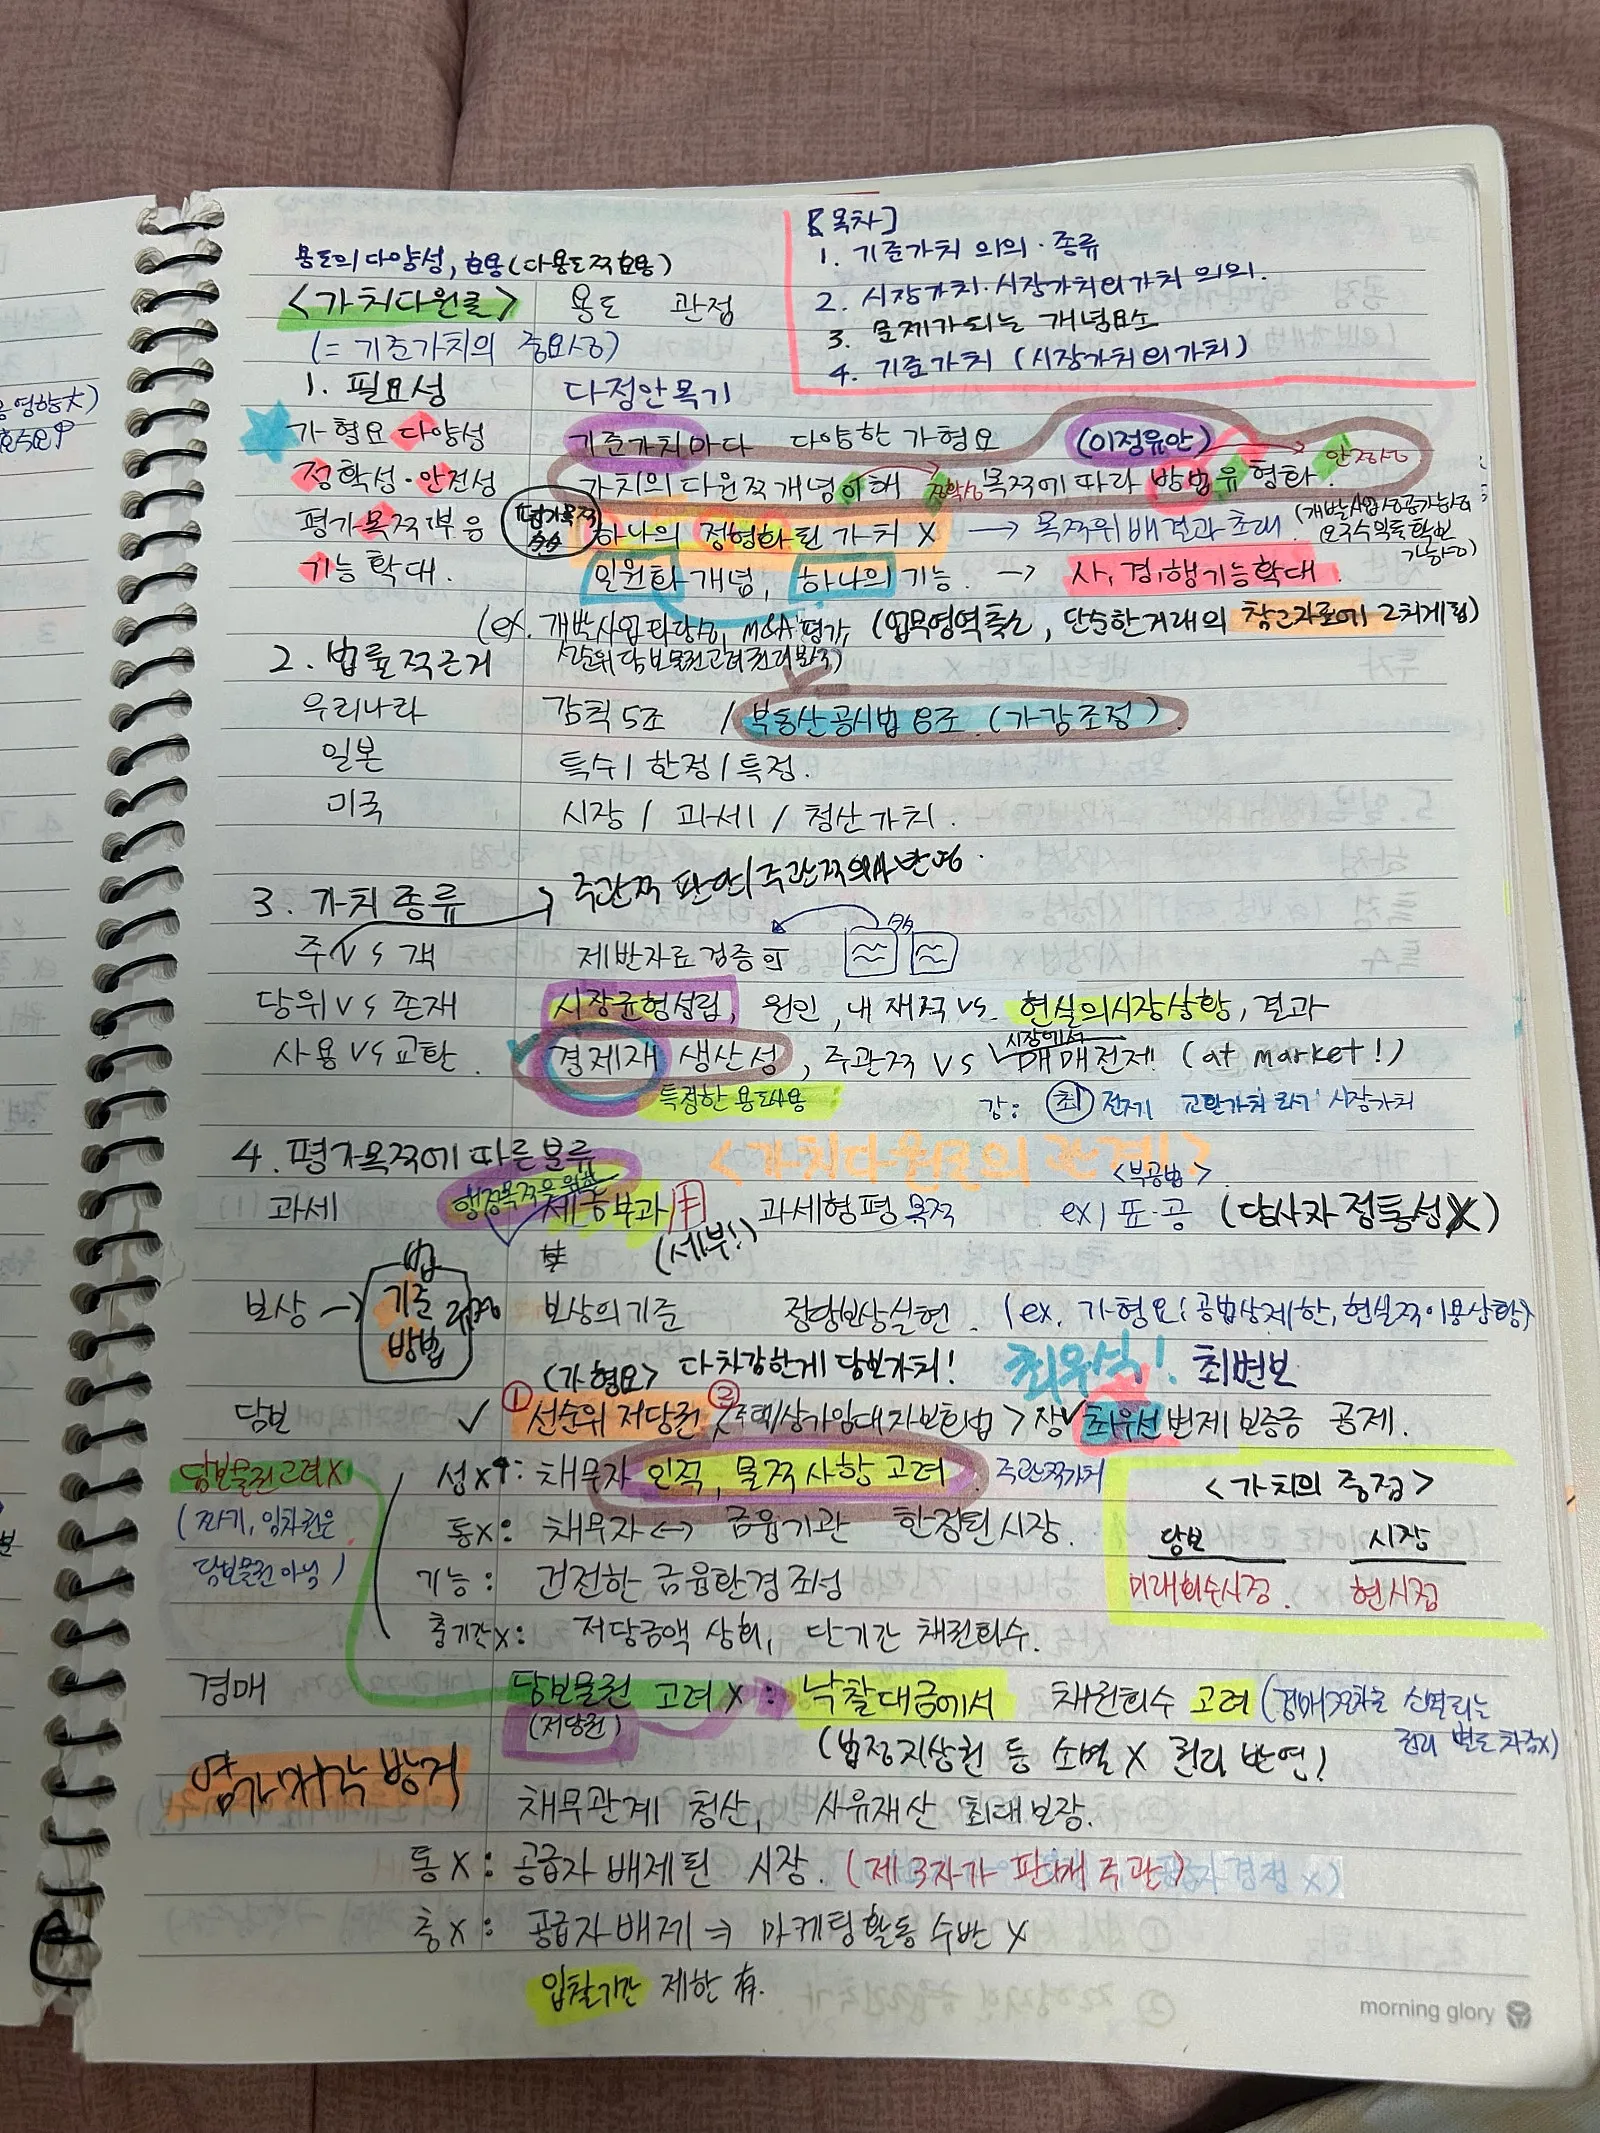 [목차]
1. 기준가치 의의·종류
2. 시장가치·시장가치外가치 의의.
3. 문제가 되는 개념요소
4. 기준가치 (시장가치外가치)
용도의 다양성, 효용(다용도적 효용)
<가치다원론> 용도 관점
(= 기준가치의 중요성)
1. 필요성 다정안목기
가형요 다양성 기준가치마다 다양한 가형요 (이정유안)
정확성·안전성 가치의 다원적 개념 이해 정확성 목적에 따라 방법 유형화. 안전성
평가목적 부응 평가목적 多 하나의 정형화된 가치 X → 목적위배결과초래.
기능 확대. 일원화 개념, 하나의 기능. → 사, 경, 행 기능확대.
(ex. 개발사업 타당성, M&A 평가, (업무영역 축소, 단순한 거래의 참고자료에 그치게 됨)
2. 법률적 근거
우리나라 감칙 5조 / 부동산공시법 8조. (가감조정)
일본 특수 / 한정 / 특정.
미국 시장 / 과세 / 청산가치.
주관적 판단 / 주관적 의사 반영.
3. 가치 종류
주 vs 객 제반자료 검증 可 多
당위 vs 존재 시장균형성립, 원인, 내재적 vs 현실의 시장상황, 결과
사용 vs 교환. 경제재 생산성, 주관적 vs 시장에서 매매전제! (at market!)
특정한 용도사용 감: 최 전제 교환가치라기 시장가치
4. 평가목적에 따른 분류 <가치다원론의 관계>
<부공법>
행정목적을 위한
과세 세금부과 과세형평 목적 ex) 표·공 (당사자 정통성 X)
(세부!)
법
보상 → 기준 방법 규정 보상의 기준 정당보상실현. (ex. 가형요 : 공법상제한, 현실적이용상황)
<가형요> 다 차감한게 담보가치! 최우선! 최변보
담보 ✓ ① 선순위 저당권 ② 주택/상가임대차보호법 > 상 최우선변제 보증금 공제.
담보물권 고려X 성X: 채무자 인적, 물적 사항 고려. 주관적가치 <가치의 중점>
임차권은 통X: 채무자 ↔ 금융기관 한정된 시장. 담보 시장
담보물권 아님) 기능: 건전한 금융환경 조성 미래회수시점. 현시점
충기간X: 저당금액 상회, 단기간 채권회수.
경매 담보물권 고려X: 낙찰대금에서 채권회수 고려
(저당권) (법정지상권 등 소멸X 권리 반영!
염가매각 방지 채무관계 청산, 사유재산 최대보장.
통X: 공급자 배제된 시장. (제3자가 판매 주관)
충X: 공급자 배제 → 마케팅활동 수반 X
입찰기간 제한 有.
morning glory